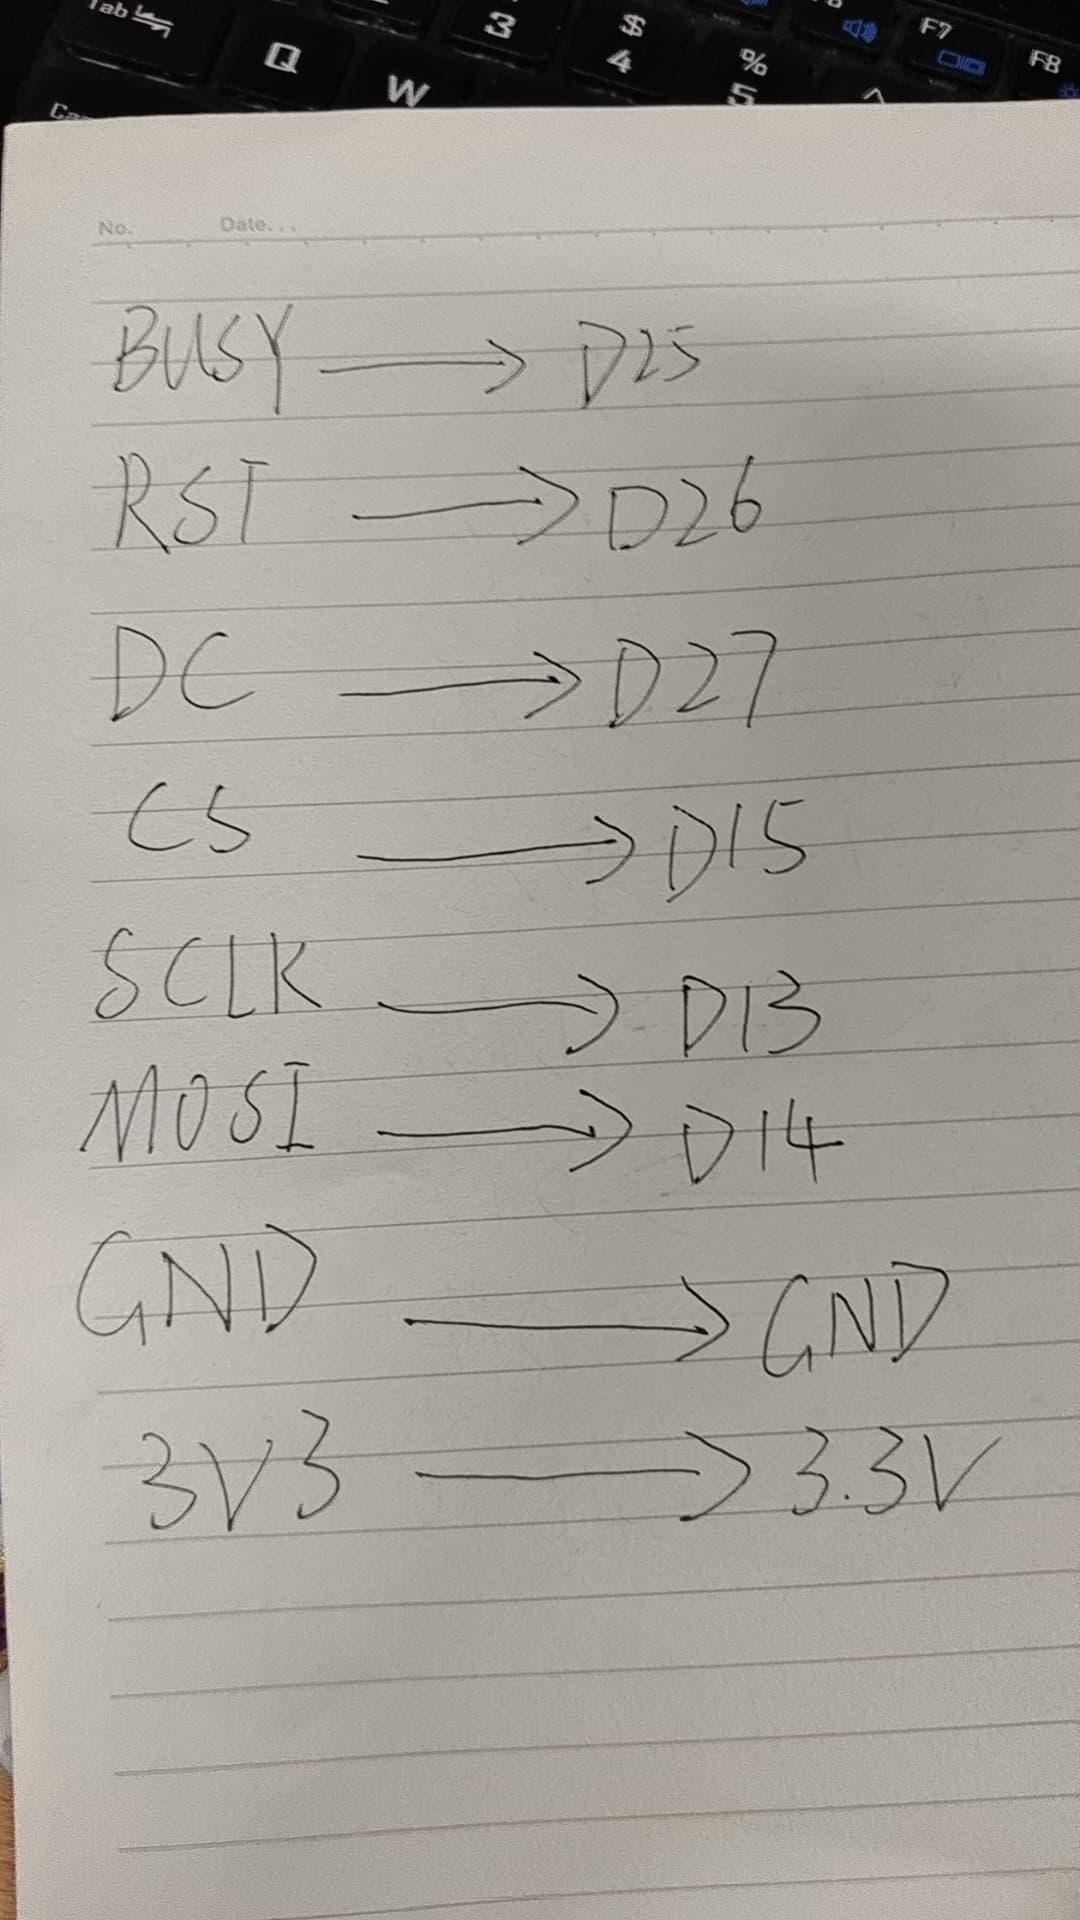 Tab
3
$
4
%
5
F7
F8
Q
W
^
No. Date...
BUSY → D25
RST → D26
DC → D27
CS → D15
SCLK → D13
MOSI → D14
GND → GND
3V3 → 3.3V